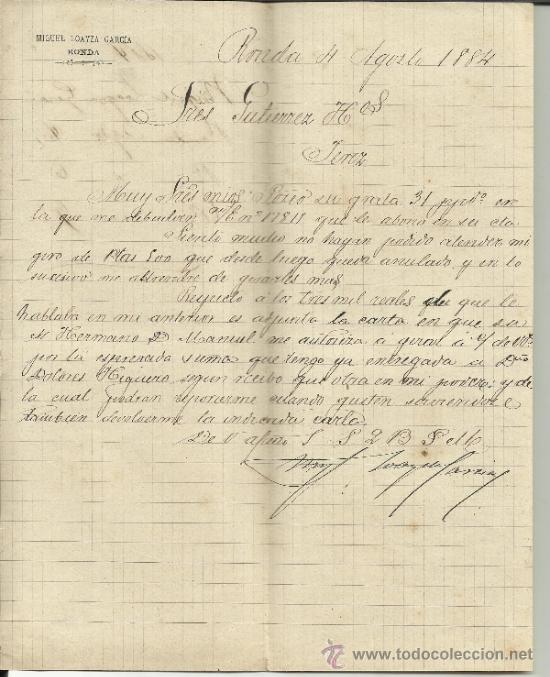 MIGUEL LOAYZA GARCÍA
RONDA
Ronda 4 Agosto 1884
Sres Gutierrez Hos
Jerez
Muy Sres mios: Poseo su grata 31 ppdo en
la que me debuelven nº 17818 que le abono en su cta
Siento mucho no hayan podido atender mi
giro de Ptas 500 que desde luego queda anulado y en lo
sucesivo me abstendre de girarles mas
Respecto a los tres mil reales de que le
hablaba en mi anterior es adjunta la carta en que su
Sr Hermano Dn Manuel me autoriza a girar a
por la espresada suma que tengo ya entregada a Dña
Dolores Higuero, segun recibo que obra en mi poder y de
la cual podran reponerme cuando gusten sirviendose
tambien devolverme la indicada carta
De V afmo S S Q B S M
Loayza Garcia
www.todocoleccion.net